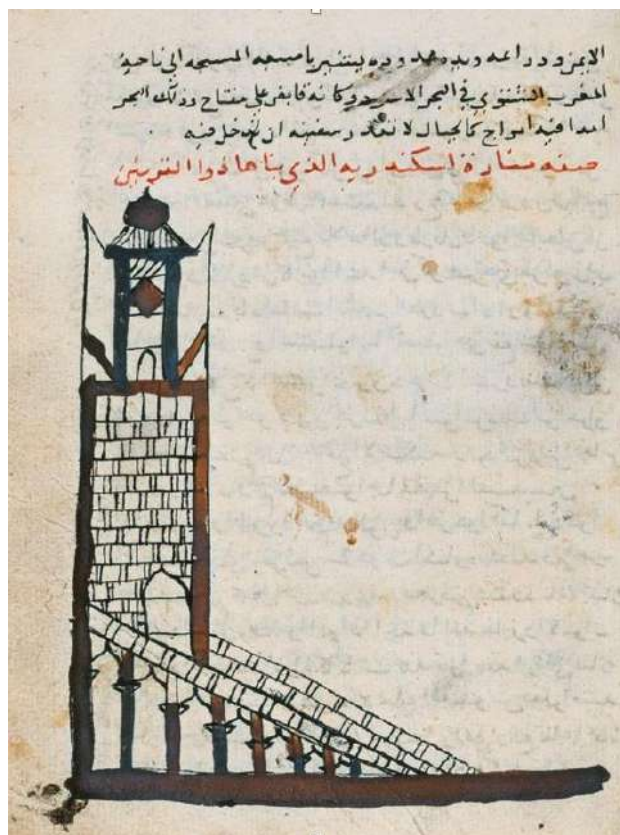 الايمن ودراعه ويده ممدوده يشير باصبعه المسبحه الي ناحيه
المغرب الشتوي في البحر الاسود وكانه قابض علي مفتاح وذلك البحر
ابدا فيه امواج كالجبال لا تقدر سفينه ان تدخل فيه
صفه منارة اسكندريه الذي بناها ذوا القرنين